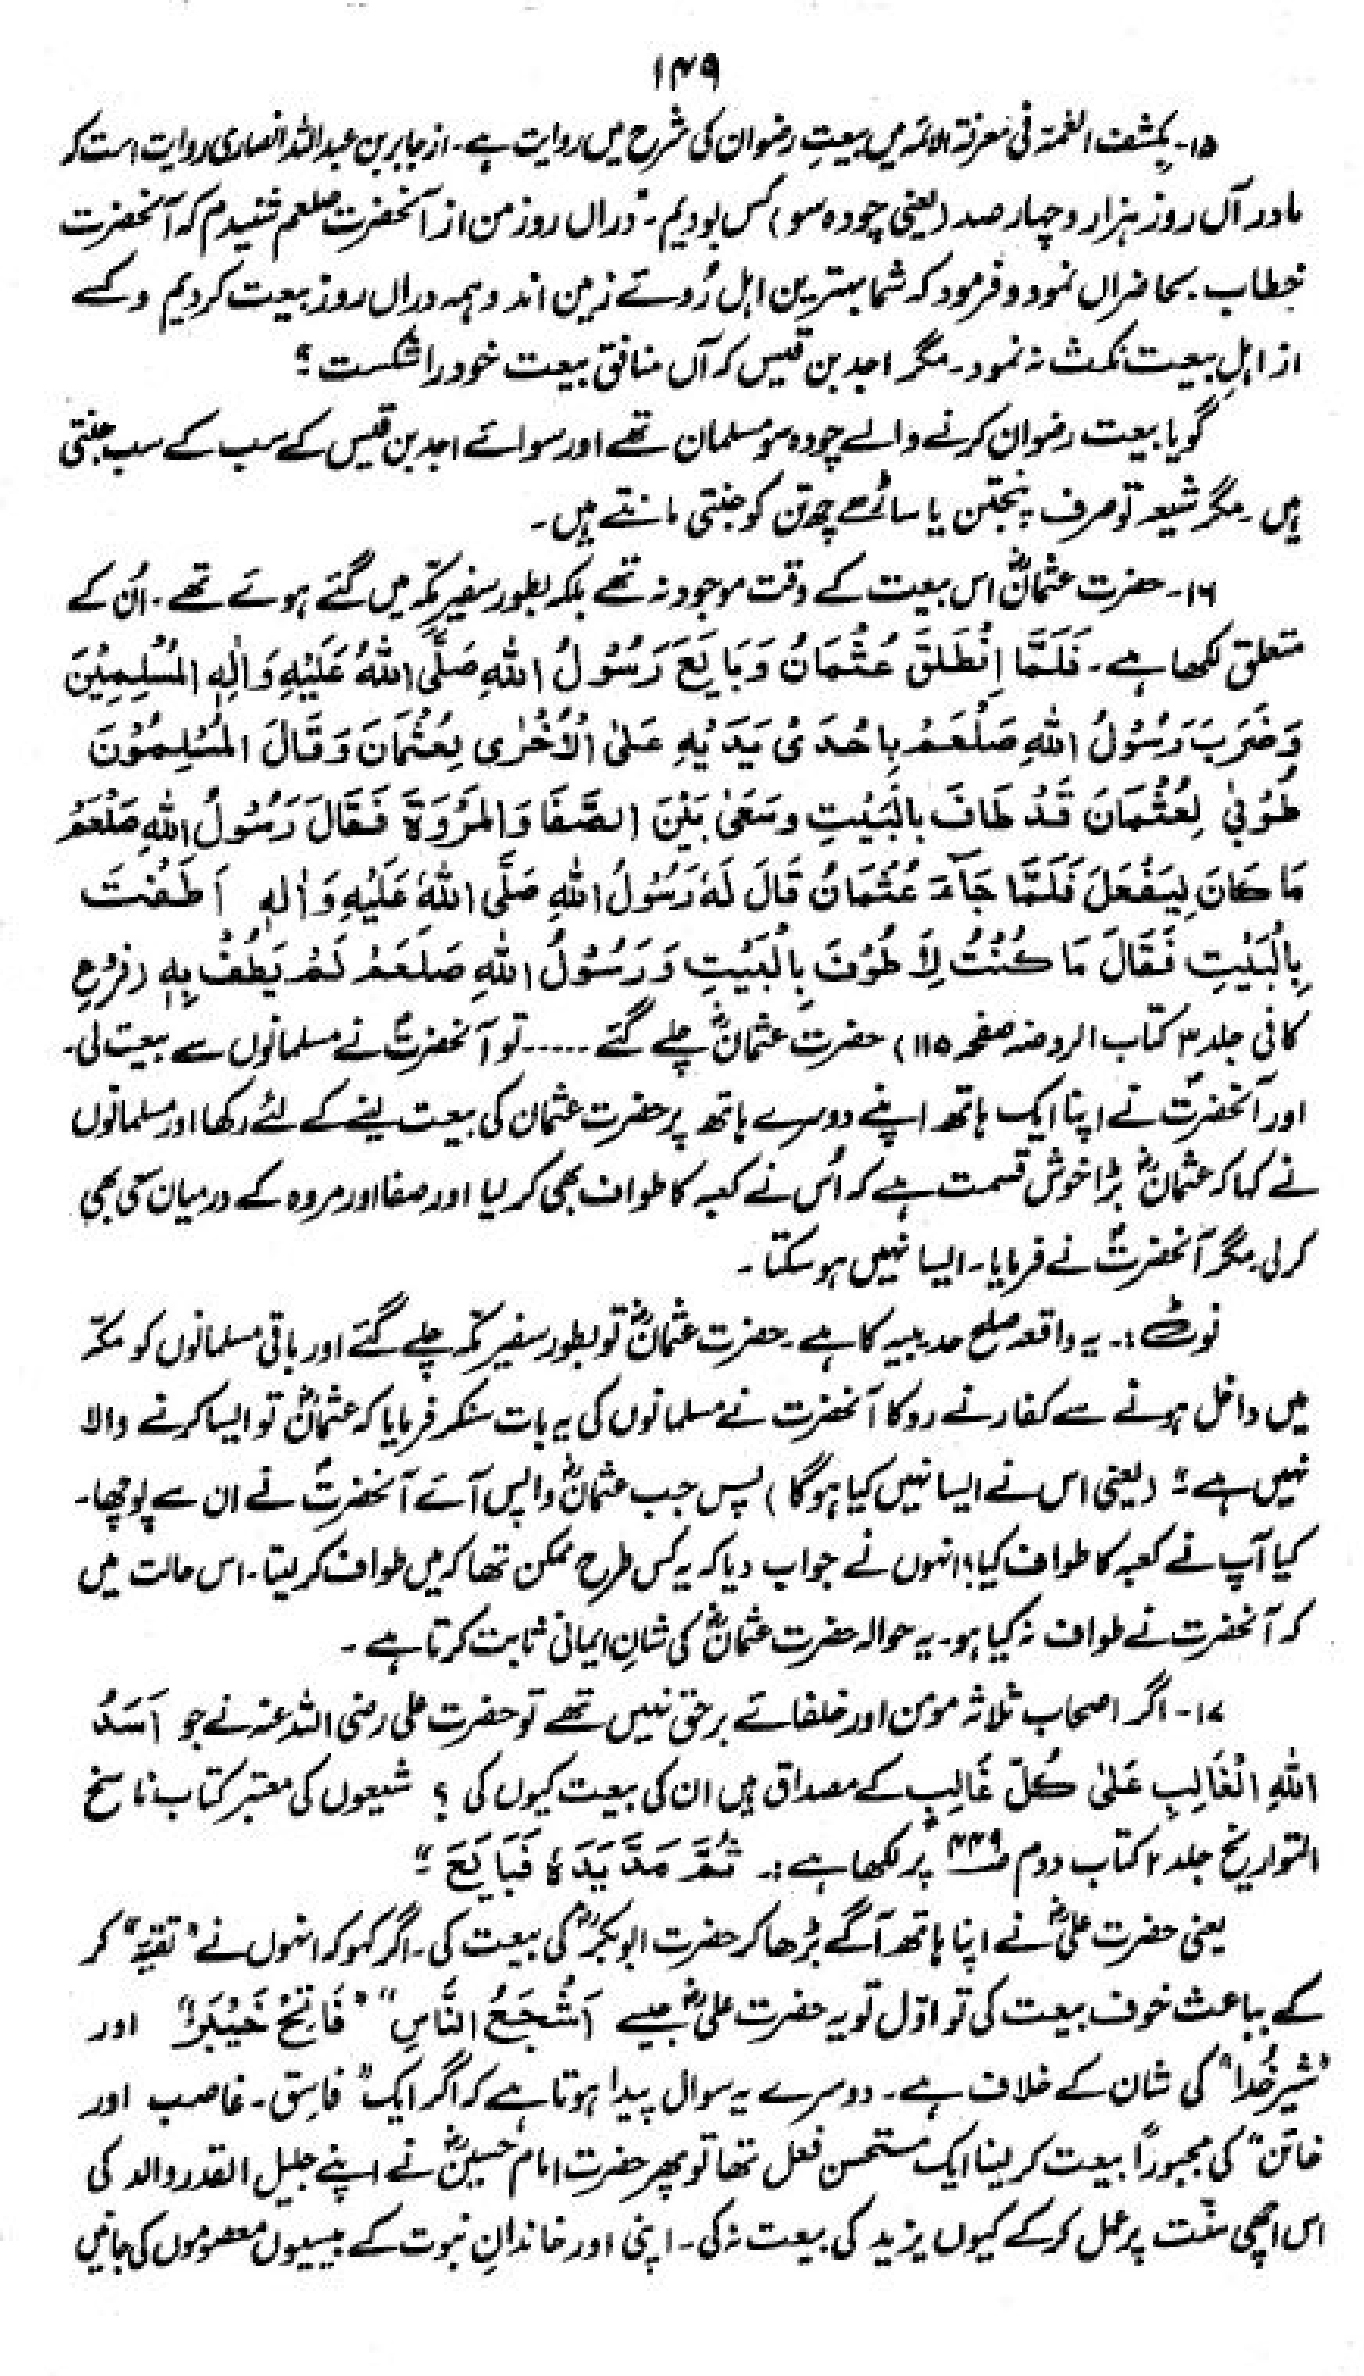 ۱۴۹
۱۵۔ کشف الغمۃ فی معرفۃ الائمہ میں بیعتِ رضوان کی شرح میں روایت ہے۔ از جابر بن عبداللہ انصاری روایت است کہ
مادر آں روز ہزار و چہار صد (یعنی چودہ سو) کس بودیم۔ دراں روز من از آنحضرت صلعم شنیدم کہ آنحضرت
خطاب بحاضراں نمود و فرمود کہ شما بہترین اہل رُوئے زمین اند و ہمہ دراں روز بیعت کردیم و کسے
از اہلِ بیعت نکث نہ نمود۔ مگر اجد بن قیس کہ آں منافق بیعت خود را شکست ؟
گویا بیعت رضوان کرنے والے چودہ سو مسلمان تھے اور سوائے اجد بن قیس کے سب کے سب جنتی
ہیں۔ مگر شیعہ تو صرف پنجتن یا ساڑھے چھ تن کو جنتی مانتے ہیں۔
۱۶۔ حضرت عثمانؓ اس بیعت کے وقت موجود نہ تھے بلکہ بطور سفیر مکّہ میں گئے ہوئے تھے۔ اُن کے
متعلق لکھا ہے۔ فَلَمَّا اِنْطَلَقَ عُثْمَانُ وَبَایَعَ رَسُوْلُ اللّٰہِ صَلَّی اللّٰہُ عَلَیْہِ وَاٰلِہٖ الْمُسْلِمِیْنَ
وَضَرَبَ رَسُوْلُ اللّٰہِ صَلْعَمْ بِاِحْدَی یَدَیْہِ عَلیٰ الْاُخْرٰی لِعُثْمَانَ وَقَالَ الْمُسْلِمُوْنَ
طُوْبیٰ لِعُثْمَانَ قَدْ طَافَ بِالْبَیْتِ وَسَعیٰ بَیْنَ الصَّفَا وَالْمَرْوَۃَ فَقَالَ رَسُوْلُ اللّٰہِ صَلْعَمْ
مَا کَانَ لِیَفْعَلَ فَلَمَّا جَآءَ عُثْمَانُ قَالَ لَہٗ رَسُوْلُ اللّٰہِ صَلَّی اللّٰہُ عَلَیْہِ وَاٰلِہٖ اَطَفْتَ
بِالْبَیْتِ فَقَالَ مَا کُنْتُ لِاَطُوْفَ بِالْبَیْتِ وَرَسُوْلُ اللّٰہِ صَلْعَمْ لَمْ یَطُفْ بِہٖ (فروع
کافی جلد ۳ کتاب الروضہ صفحہ ۱۱۵) حضرت عثمانؓ چلے گئے ..... تو آنحضرتؐ نے مسلمانوں سے بیعت لی۔
اور آنحضرتؐ نے اپنا ایک ہاتھ اپنے دوسرے ہاتھ پر حضرت عثمان کی بیعت لینے کے لئے رکھا اور مسلمانوں
نے کہا کہ عثمانؓ بڑا خوش قسمت ہے کہ اُس نے کعبہ کا طواف بھی کر لیا اور صفا اور مروہ کے درمیان سعی بھی
کر لی۔ مگر آنحضرتؐ نے فرمایا۔ ایسا نہیں ہو سکتا۔
نوٹ:۔ یہ واقعہ صلح حدیبیہ کا ہے۔ حضرت عثمانؓ تو بطور سفیر مکّہ چلے گئے اور باقی مسلمانوں کو مکّہ
میں داخل ہونے سے کفار نے روکا آنحضرت نے مسلمانوں کی یہ بات سنکر فرمایا کہ عثمانؓ تو ایسا کرنے والا
نہیں ہے" (یعنی اس نے ایسا نہیں کیا ہوگا) پس جب عثمانؓ واپس آئے آنحضرتؐ نے ان سے پوچھا۔
کیا آپ نے کعبہ کا طواف کیا؟ انہوں نے جواب دیا کہ یہ کس طرح ممکن تھا کہ میں طواف کر لیتا۔ اس حالت میں
کہ آنحضرت نے طواف نہ کیا ہو۔ یہ حوالہ حضرت عثمانؓ کی شانِ ایمانی ثابت کرتا ہے۔
۱۷۔ اگر اصحاب ثلاثہ مومن اور خلفائے برحق نہیں تھے تو حضرت علی رضی اللہ عنہ نے جو اَسَدُ
اللّٰہِ الْغَالِبِ عَلیٰ کُلِّ غَالِبٍ کے مصداق ہیں ان کی بیعت کیوں کی ؟ شیعوں کی معتبر کتاب ناسخ
التواریخ جلد ۲ کتاب دوم صفحہ ۴۴۹ پر لکھا ہے:۔ ثُمَّ مَدَّ یَدَہٗ فَبَایَعَ"
یعنی حضرت علیؓ نے اپنا ہاتھ آگے بڑھا کر حضرت ابوبکرؓ کی بیعت کی۔ اگر کہو کہ انہوں نے "تقیہ" کر
کے بباعث خوف بیعت کی تو اوّل تو یہ حضرت علیؓ جیسے اَشْجَعُ النَّاسِ" "فَاتِحُ خَیْبَر" اور
"شیرِ خُدا" کی شان کے خلاف ہے۔ دوسرے یہ سوال پیدا ہوتا ہے کہ اگر ایک "فاسِق۔ غاصب اور
خائن" کی مجبوراً بیعت کر لینا ایک مستحسن فعل تھا تو پھر حضرت امام حسینؓ نے اپنے جلیل القدر والد کی
اس اچھی سنّت پر عمل کر کے کیوں یزید کی بیعت نہ کی۔ اپنی اور خاندانِ نبوت کے بیسیوں معصوموں کی جانیں